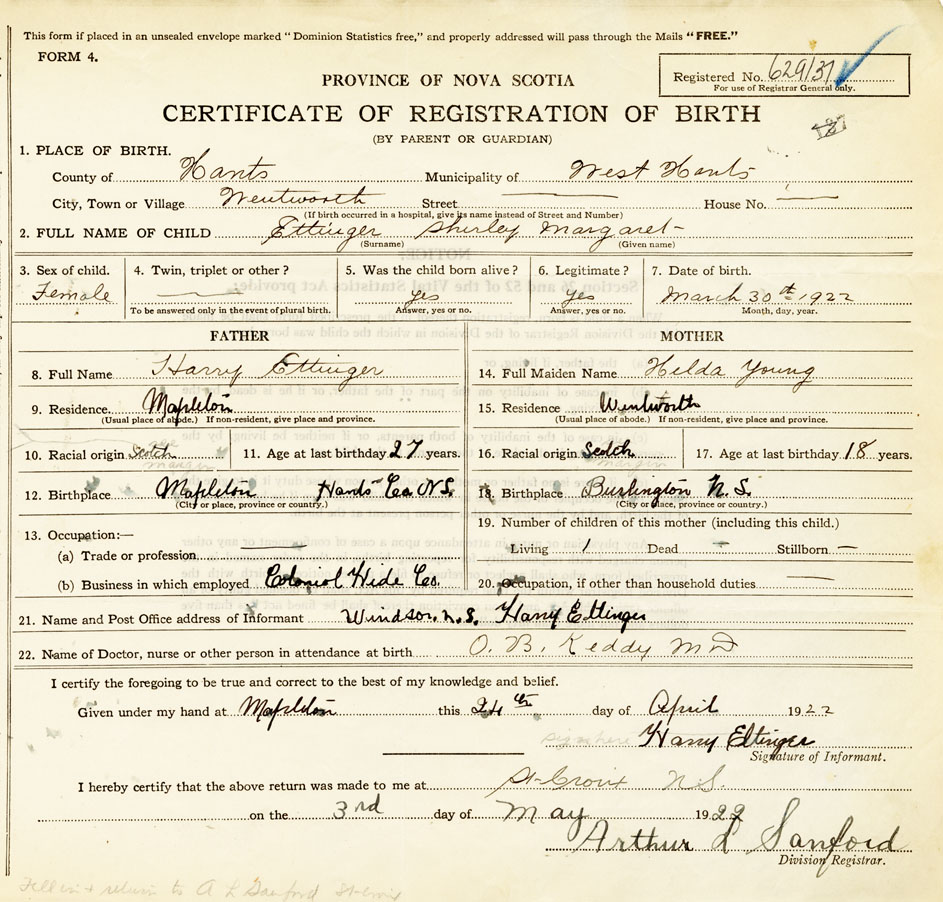 This form if placed in an unsealed envelope marked "Dominion Statistics free," and properly addressed will pass through the Mails "FREE."
FORM 4.
Registered No. 629/37
For use of Registrar General only.
PROVINCE OF NOVA SCOTIA
CERTIFICATE OF REGISTRATION OF BIRTH
(BY PARENT OR GUARDIAN)
1. PLACE OF BIRTH.
County of Hants Municipality of West Hants
City, Town or Village Wentworth Street — House No. —
(If birth occurred in a hospital, give its name instead of Street and Number)
2. FULL NAME OF CHILD Ettinger Shirley Margaret
(Surname) (Given name)
3. Sex of child. 4. Twin, triplet or other? 5. Was the child born alive? 6. Legitimate? 7. Date of birth.
Female — yes yes March 30th 1922
To be answered only in the event of plural birth. Answer, yes or no. Answer, yes or no. Month, day, year.
FATHER MOTHER
8. Full Name Harry Ettinger 14. Full Maiden Name Hilda Young
9. Residence. Mapleton 15. Residence Wentworth
(Usual place of abode.) If non-resident, give place and province. (Usual place of abode.) If non-resident, give place and province.
10. Racial origin Scotch 11. Age at last birthday 27 years. 16. Racial origin Scotch 17. Age at last birthday 18 years.
12. Birthplace Mapleton Hants Co. N.S. 18. Birthplace Burlington N.S.
(City or place, province or country.) (City or place, province or country.)
13. Occupation:— 19. Number of children of this mother (including this child.)
(a) Trade or profession — Living 1 Dead — Stillborn —
(b) Business in which employed Colonial Hide Co. 20. Occupation, if other than household duties —
21. Name and Post Office address of Informant Windsor, N.S. Harry Ettinger
22. Name of Doctor, nurse or other person in attendance at birth O. B. Keddy MD
I certify the foregoing to be true and correct to the best of my knowledge and belief.
Given under my hand at Mapleton this 24th day of April 1922
sign here Harry Ettinger
Signature of Informant.
I hereby certify that the above return was made to me at St-Croix N.S.
on the 3rd day of May 1922
Arthur L Sanford
Division Registrar.
Fill in & return to A L Sanford St-Croix